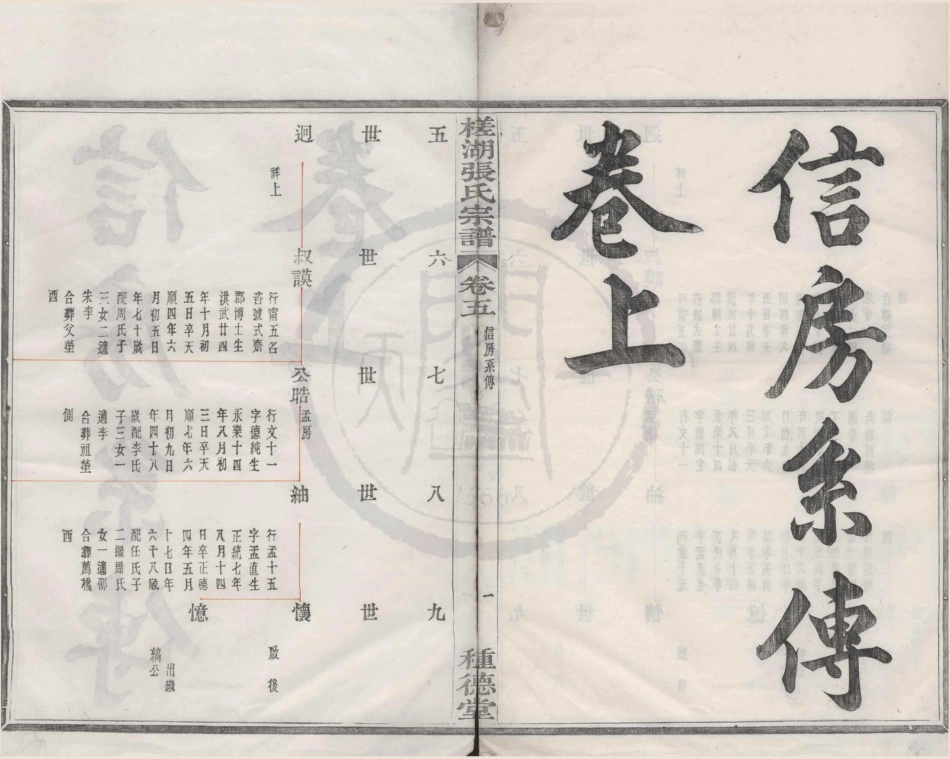 信房系傳
卷上
槎湖張氏宗譜
卷五
信房系傳
一
種德堂
五世
六世
七世
八世
九世
迥
詳上
叔謨
行甯五名
書號式齋
郡博士生
洪武廿四
年十月初
五日卒天
順四年六
月初五日
年七十歲
配周氏子
三女二適
朱李
合葬父塋
西
公晧
孟房
行文十一
字德純生
永樂十四
年八月初
三日卒天
順七年六
月初九日
年四十八
歲配李氏
子三女一
適李
合葬祖塋
側
紬
行孟十五
字孟直生
正統七年
八月十四
日卒正德
四年五月
十七日年
六十八歲
配任氏子
二繼周氏
女一適邵
合葬萬楊
西
懷
啟後
憶
出繼
稿公